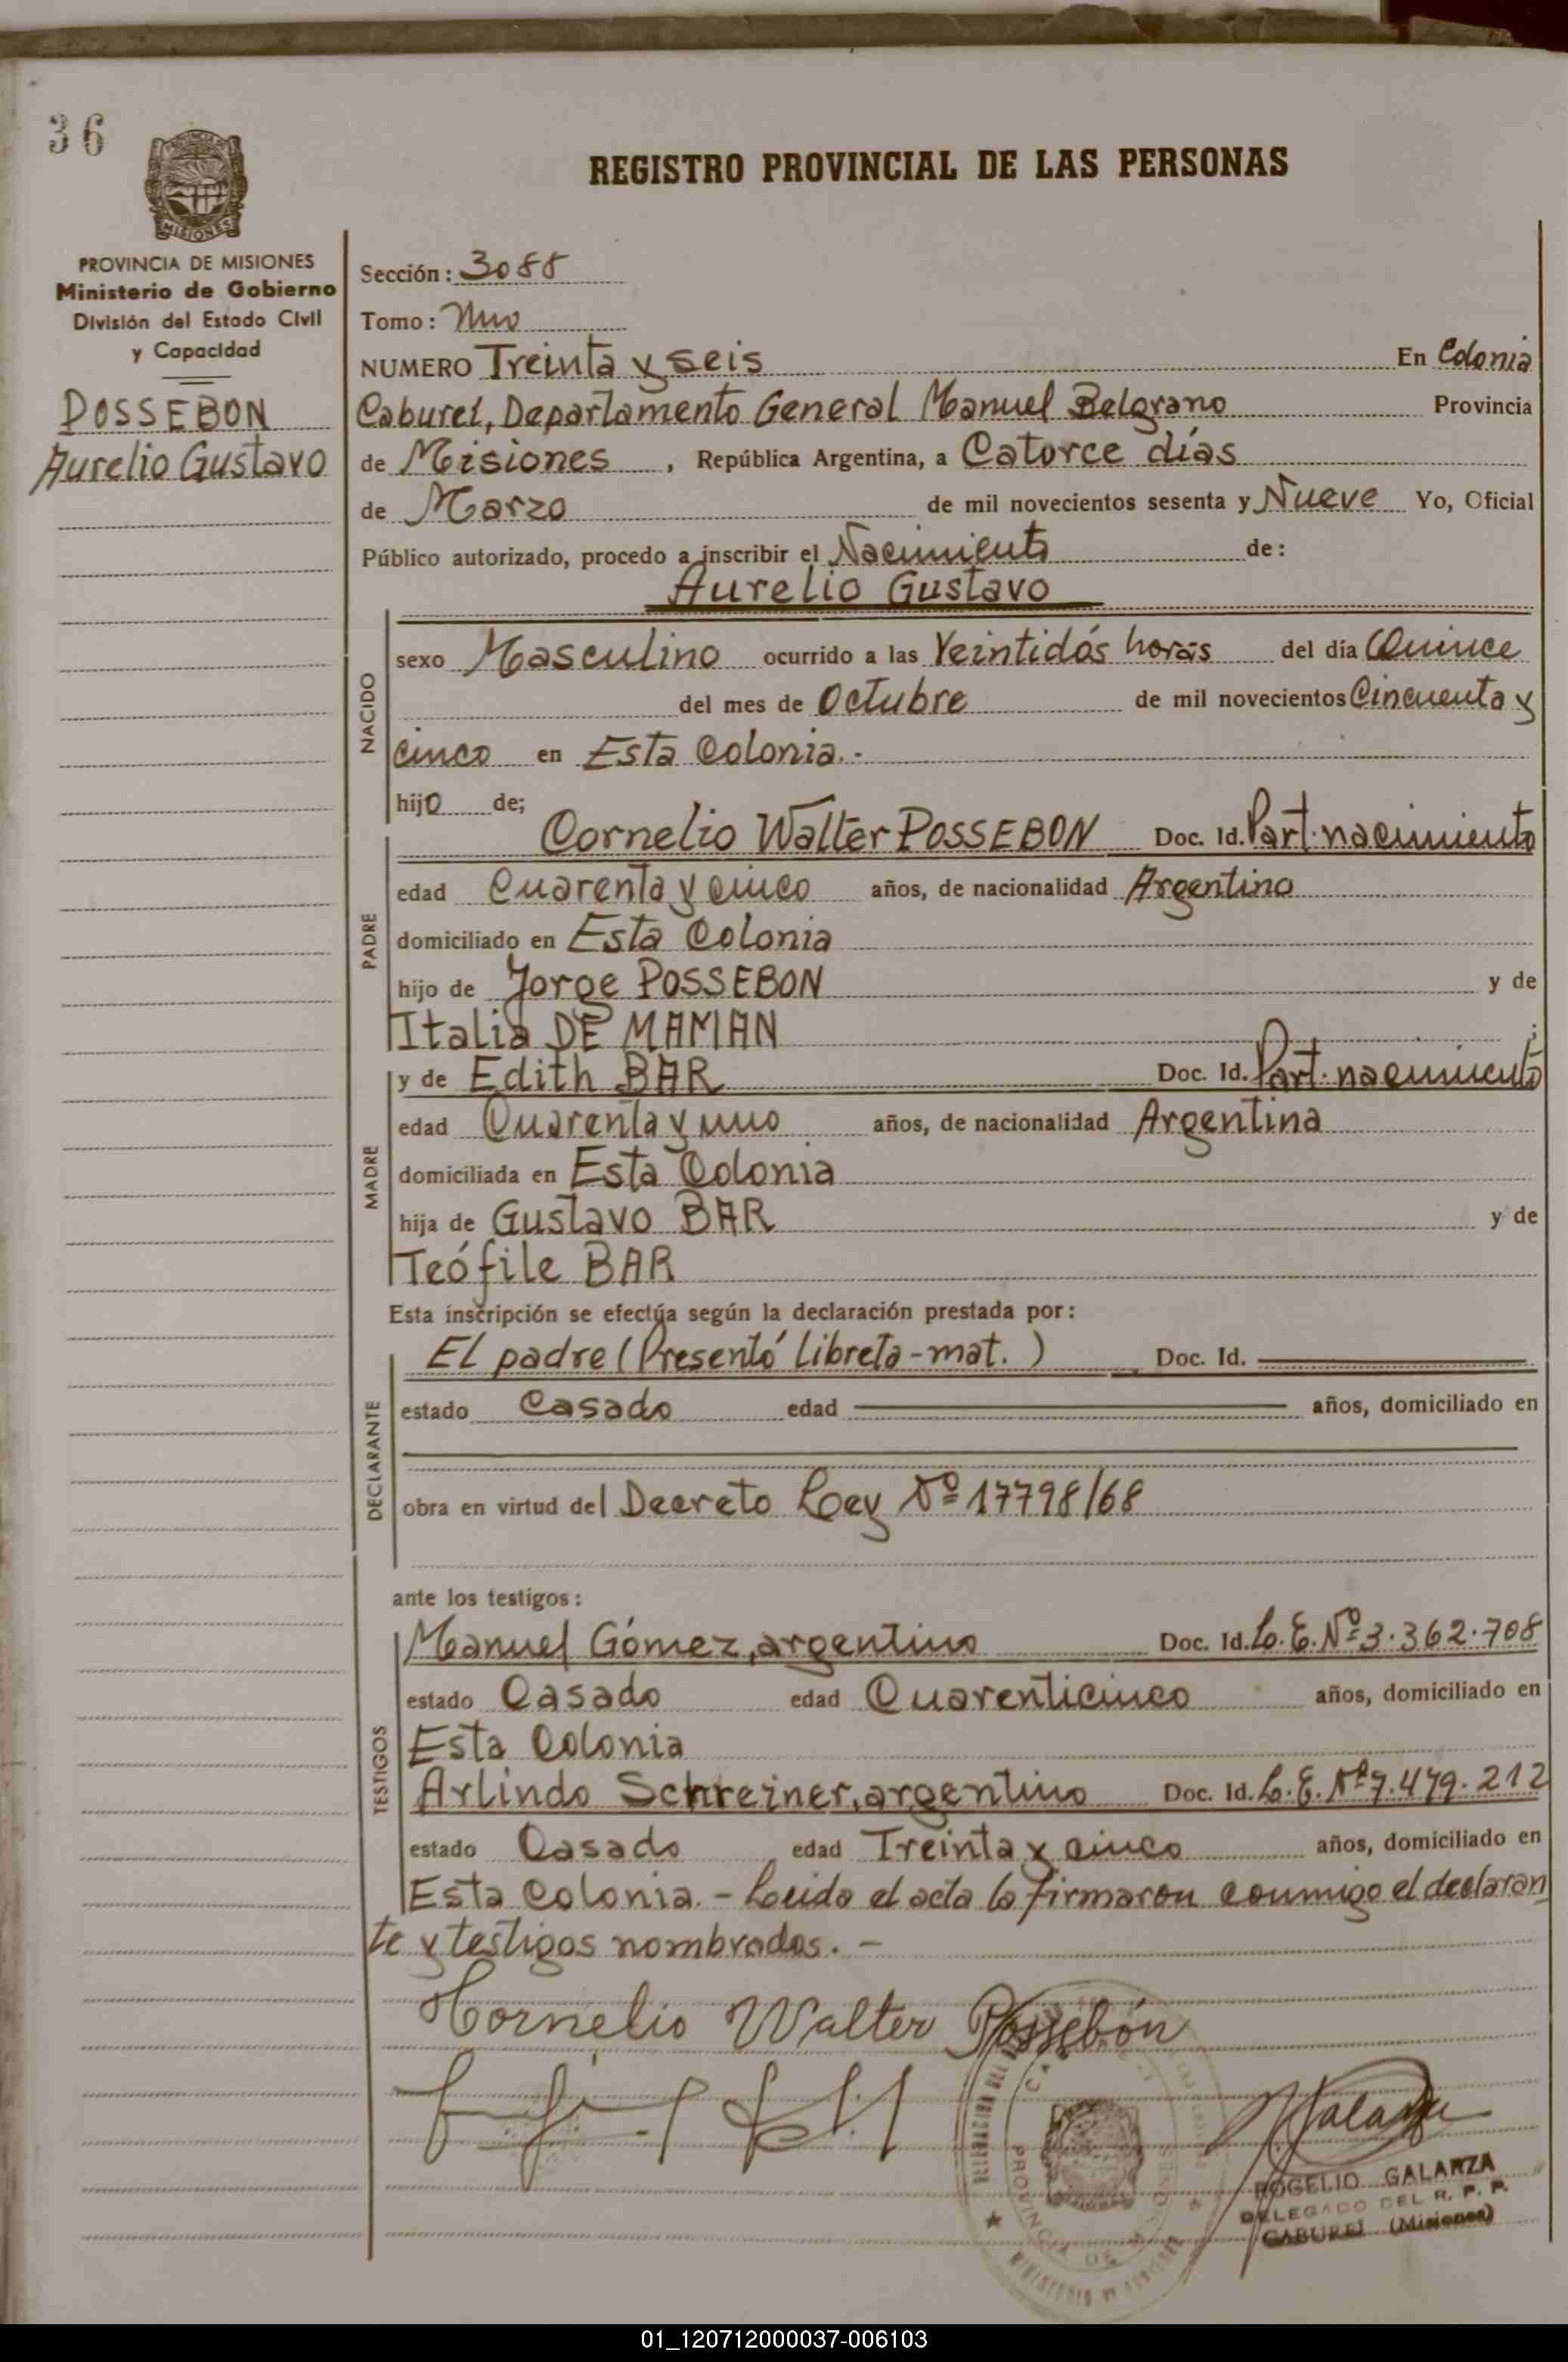 36
REGISTRO PROVINCIAL DE LAS PERSONAS
PROVINCIA DE MISIONES
Ministerio de Gobierno
División del Estado Civil
y Capacidad
POSSEBON
Aurelio Gustavo
Sección: 3088
Tomo: Uno
NUMERO Treinta y seis En Colonia
Cabureí, Departamento General Manuel Belgrano Provincia
de Misiones, República Argentina, a Catorce días
de Marzo de mil novecientos sesenta y Nueve Yo, Oficial
Público autorizado, procedo a inscribir el Nacimiento de:
Aurelio Gustavo
NACIDO
sexo Masculino ocurrido a las Veintidós horas del día Quince
del mes de Octubre de mil novecientos Cincuenta y
cinco en Esta Colonia.-
hijo de;
PADRE
Cornelio Walter POSSEBON Doc. Id. Part. nacimiento
edad Cuarenta y cinco años, de nacionalidad Argentino
domiciliado en Esta Colonia
hijo de Jorge POSSEBON y de
Italia DE MAMAN ;
MADRE
y de Edith BAR Doc. Id. Part. nacimiento
edad Cuarenta y uno años, de nacionalidad Argentina
domiciliada en Esta Colonia
hija de Gustavo BAR y de
Teófile BAR
Esta inscripción se efectúa según la declaración prestada por:
DECLARANTE
El padre (Presentó libreta-mat.) Doc. Id.
estado Casado edad años, domiciliado en
obra en virtud del Decreto Ley Nº 17798/68
ante los testigos:
TESTIGOS
Manuel Gómez, argentino Doc. Id. L. E. Nº 3.362.708
estado Casado edad Cuarenticinco años, domiciliado en
Esta Colonia
Arlindo Schreiner, argentino Doc. Id. L. E. Nº 7.479.212
estado Casado edad Treinta y cinco años, domiciliado en
Esta Colonia.- Leida el acta la firmaron conmigo el declaran
te y testigos nombrados.-
Cornelio Walter Possebón
ROGELIO GALARZA
DELEGADO DEL R. P. P.
CABUREI (Misiones)
PROVINCIA DE
01_120712000037-006103